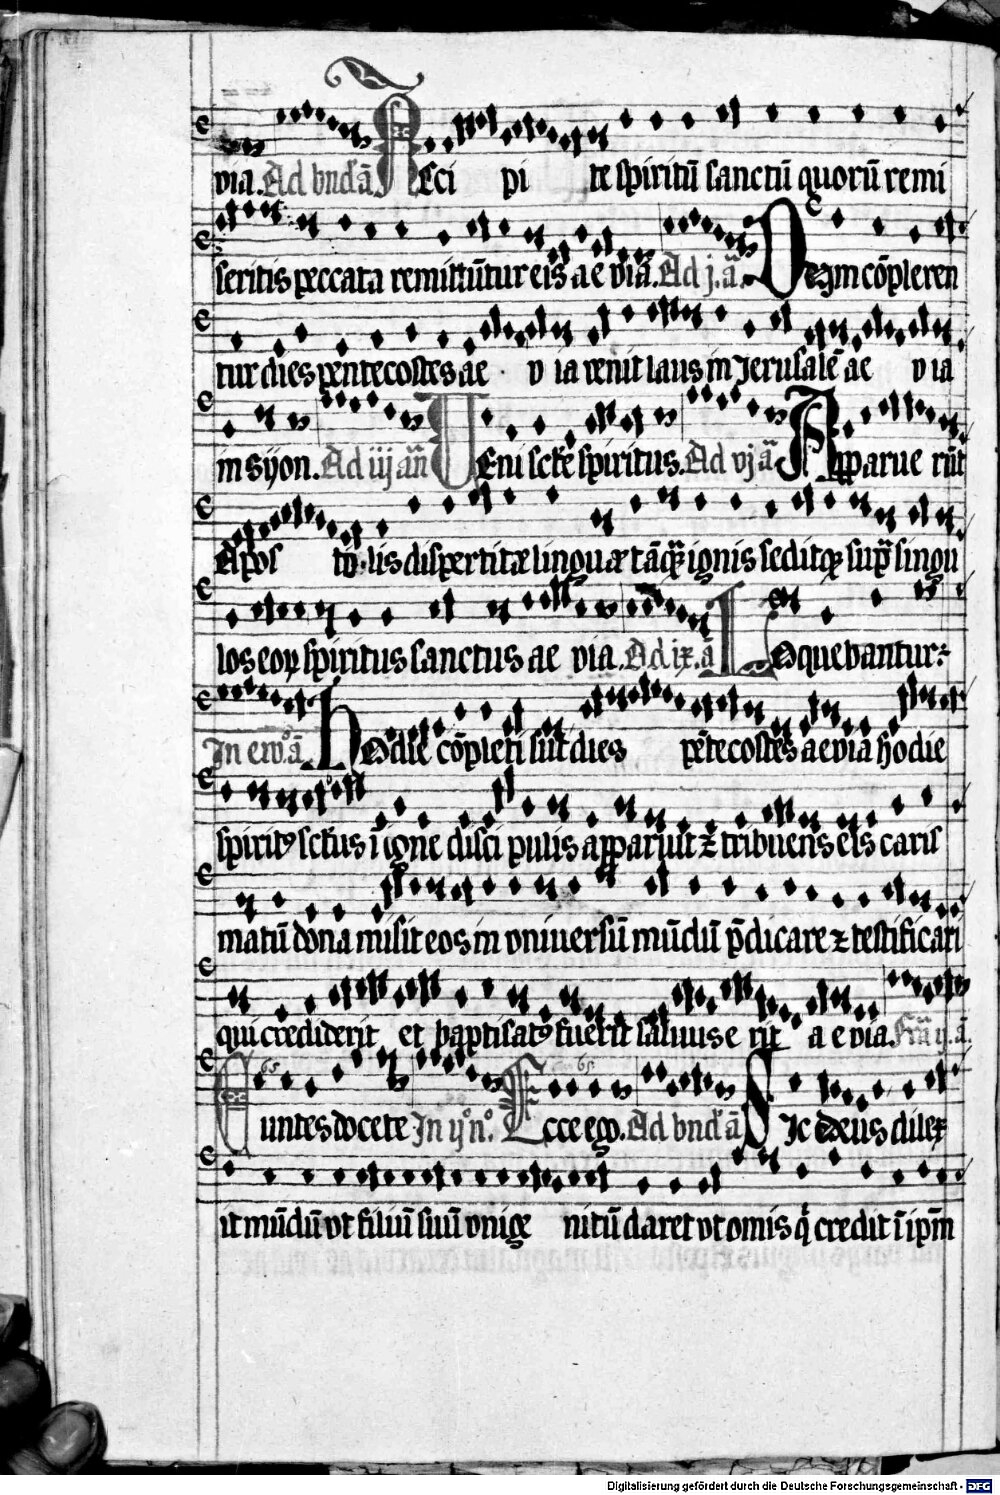 via. Ad bnd'ā Acci pi te spiritū sanctū quorū remi
seritis peccata remittūtur eis a e via. Ad j. ā. Dum cōpleren
tur dies pentecostes ae v ia venit laus in Jerusalē ae v ia
in syon. Ad iij añ Veni scte spiritus. Ad vj ā Apparue rūt
Apos to lis dispertitæ linguæ tāq̄ ignis seditq̄ sup singu
los eoꝝ spiritus sanctus ae via. Ad ix. ā Loquebantur
In ew. ā Hodie cōpleti sūt dies pētecostes a e via hodie
spiritꝰ sctus ī igne disci pulis apparuit ꝛ tribuens eis caris
matū dona misit eos in vniuersū mūdū p̄dicare ꝛ testificari
qui crediderit et baptisatꝰ fuerit saluus e rit a e via. Fr̄a ij. ā.
65 65
Euntes docete In ij n. Ecce ego. Ad bnd'ā Sic deus dilex
it mūdū vt filiū suū vnige nitū daret vt omis q̇ credit ī ipm̄
Digitalisierung gefördert durch die Deutsche Forschungsgemeinschaft - DFG